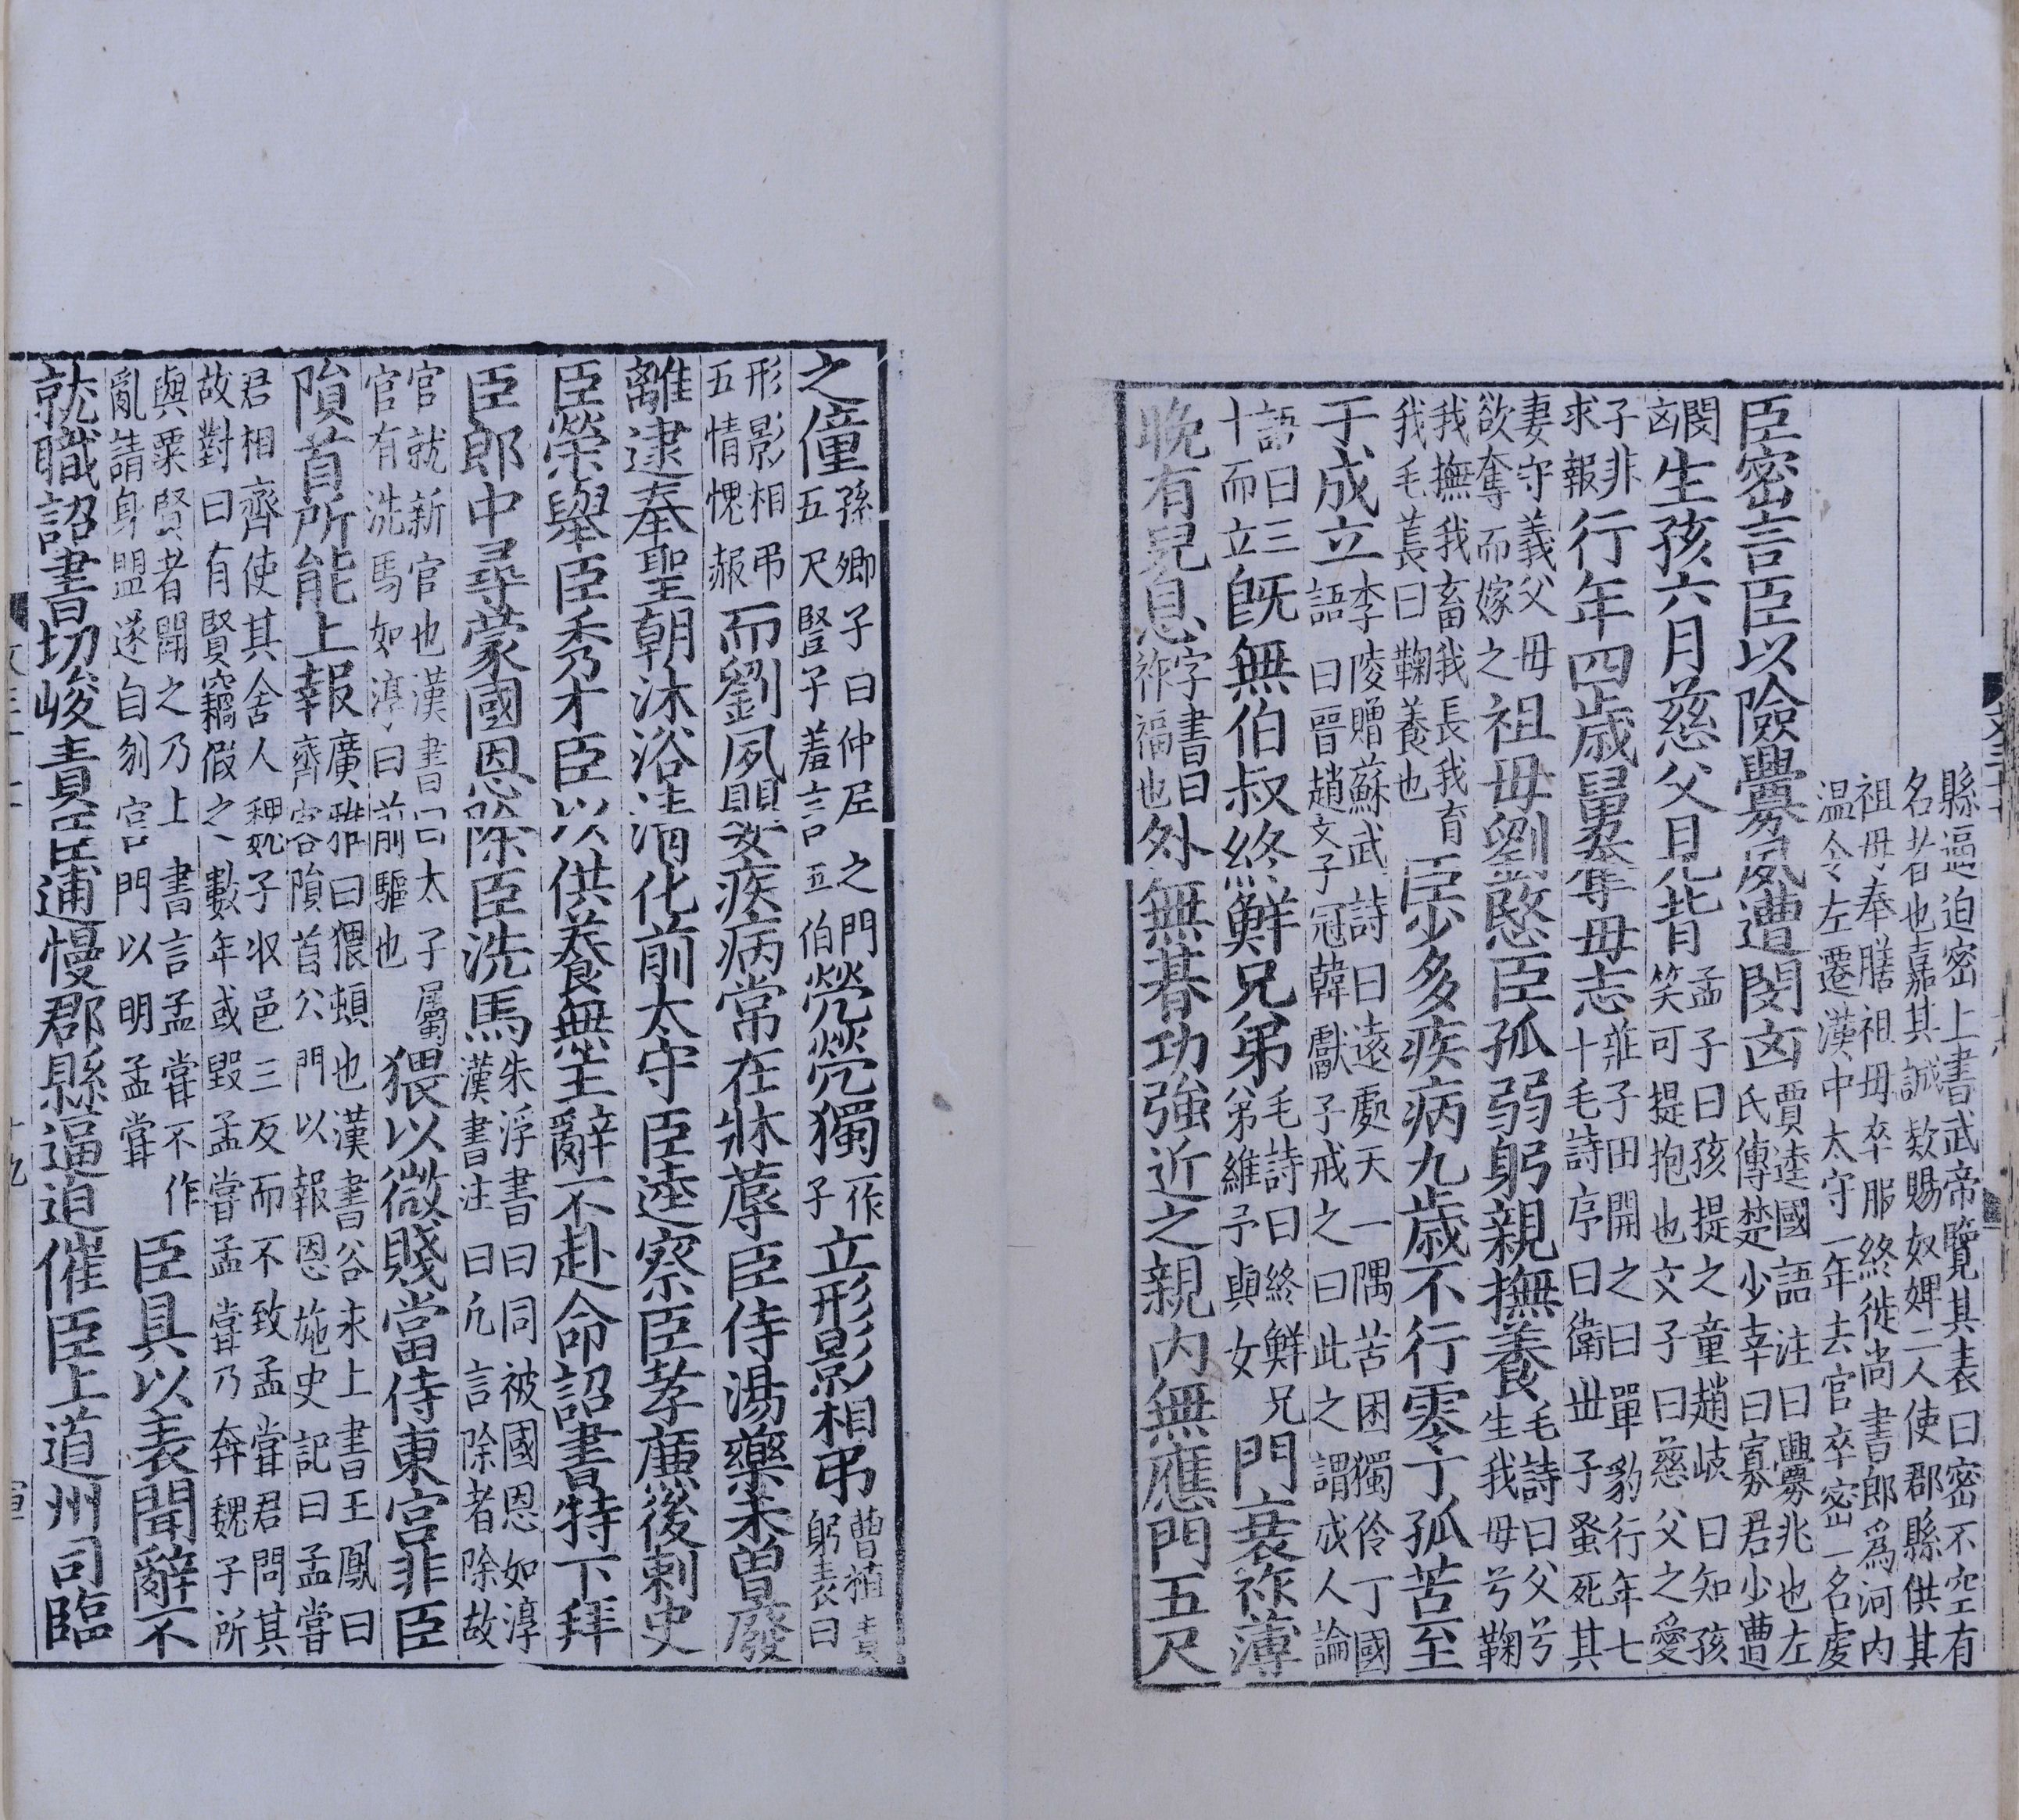 縣逼迫密上書武帝覽其表曰密不空有
名者也嘉其誠欵賜奴婢二人使郡縣供其
祖母奉膳祖母卒服終徙尚書郎爲河内
温令左遷漢中太守一年去官卒密一名虔
臣密言臣以險釁夙遭閔凶
賈逵國語注曰釁兆也左
氏傳楚少宰曰寡君少遭
閔
凶
生孩六月慈父見背
孟子曰孩提之童趙岐曰知孩
笑可提抱也文子曰慈父之愛
子非
求報
行年四歲舅奪母志
莊子田開之曰單豹行年七
十毛詩序曰衛世子蚤死其
妻守義父母
欲奪而嫁之
祖母劉愍臣孤弱躬親撫養
毛詩曰父兮
生我母兮鞠
我撫我畜我長我育
我毛萇曰鞠養也
臣少多疾病九歲不行零丁孤苦至
于成立
李陵贈蘇武詩曰遠處天一隅苦困獨伶丁國
語曰晉趙文子冠韓獻子戒之曰此之謂成人論
語曰三
十而立
旣無伯叔終鮮兄弟
毛詩曰終鮮兄
弟維予與女
門衰祚薄
晚有兒息
字書曰
祚福也
外無朞功強近之親内無應門五尺
之僮
孫卿子曰仲尼之門
五尺豎子羞言五伯
煢煢獨
一作
子
立形影相弔
曹植責
躬表曰
形影相弔
五情愧赧
而劉夙嬰疾病常在牀蓐臣侍湯藥未曽廢
離逮奉聖朝沐浴清化前太守臣逵察臣孝廉後刺史
臣榮舉臣秀才臣以供養無主辭不赴命詔書特下拜
臣郎中尋蒙國恩除臣洗馬
朱浮書曰同被國恩如淳
漢書注曰凢言除者除故
官就新官也漢書曰太子屬
官有洗馬如淳曰前驅也
猥以微賤當侍東宫非臣
隕首所能上報
廣雅曰猥頓也漢書谷永上書王鳳曰
齊客隕首公門以報恩施史記曰孟嘗
君相齊使其舍人魏子収邑三反而不致孟嘗君問其
故對曰有賢竊假之數年或毀孟嘗孟嘗乃奔魏子所
與粟賢者聞之乃上書言孟嘗不作
亂請身盟遂自刎宫門以明孟嘗
臣具以表聞辭不
就職詔書切峻責臣逋慢郡縣逼迫催臣上道州司臨